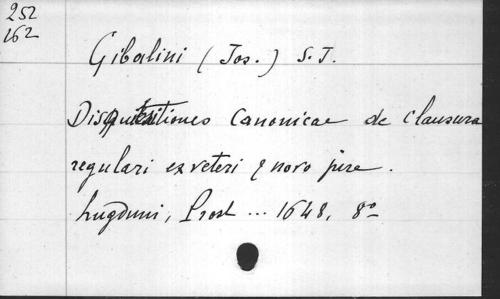 252
162
Gibalini (Jos.) S. J.
Disquisitiones Canonicae de clausura
regulari ex veteri & novo jure.
Lugduni, Prost ... 1648, 8º